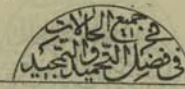 في جميع الحالات
في فضل التحميد والتمجيد